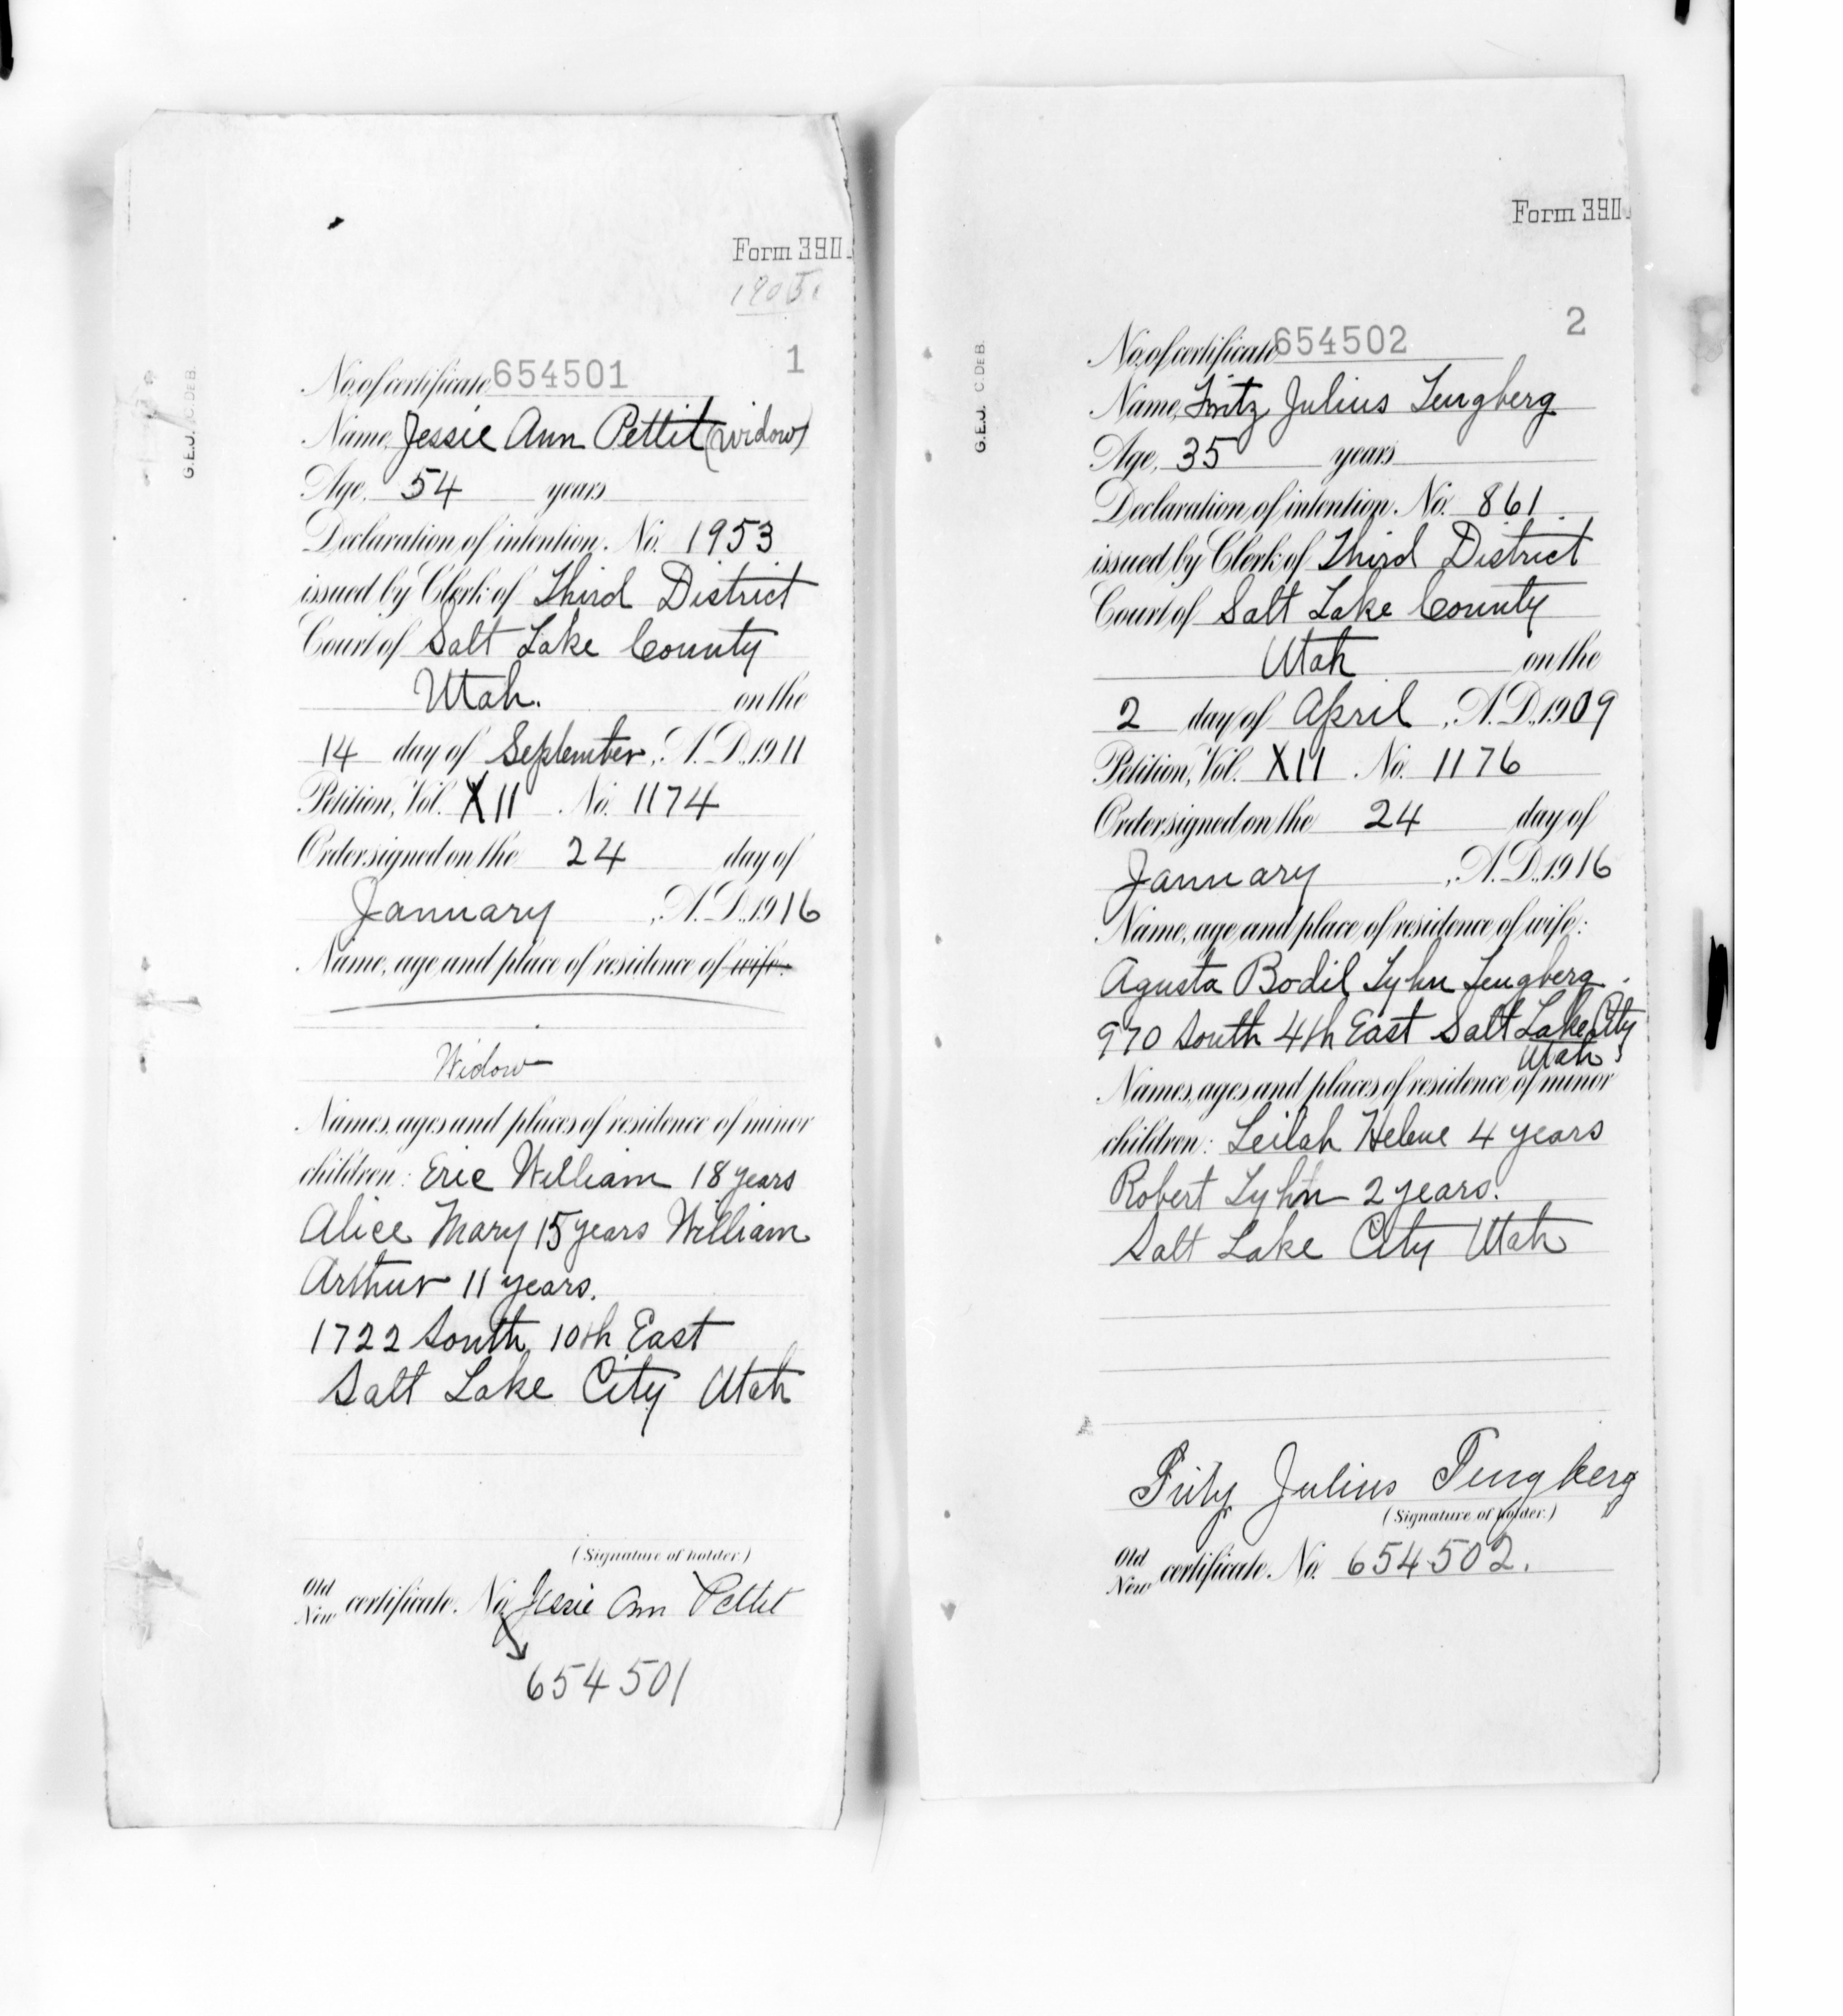 Form 390.
1905
G.E.J. C. DE B.
1
No. of certificate 654501
Name, Jessie Ann Pettit (widow)
Age, 54 years
Declaration of intention. No. 1953
issued by Clerk of Third District
Court of Salt Lake County
Utah. on the
14 day of September, A. D., 1911
Petition, Vol. XII No. 1174
Order signed on the 24 day of
January, A. D., 1916
Name, age and place of residence of wife:
Widow
Names, ages and places of residence of minor
children: Eric William 18 years
Alice Mary 15 years William
Arthur 11 years.
1722 South 10th East
Salt Lake City Utah
(Signature of holder.)
Old
New certificate. No. Jessie Ann Pettit
654501
Form 390.
G.E.J. C. DE B.
2
No. of certificate 654502
Name, Fritz Julius Tengberg
Age, 35 years
Declaration of intention. No. 861
issued by Clerk of Third District
Court of Salt Lake County
Utah on the
2 day of April, A. D., 1909
Petition, Vol. XII No. 1176
Order signed on the 24 day of
January, A. D., 1916
Name, age and place of residence of wife:
Agusta Bodil Tyhn Tengberg.
970 South 4th East Salt Lake City
Utah
Names, ages and places of residence of minor
children: Leilah Helene 4 years
Robert Tyhn 2 years.
Salt Lake City Utah
Fritz Julius Tengberg
(Signature of holder.)
Old
New certificate. No. 654502.